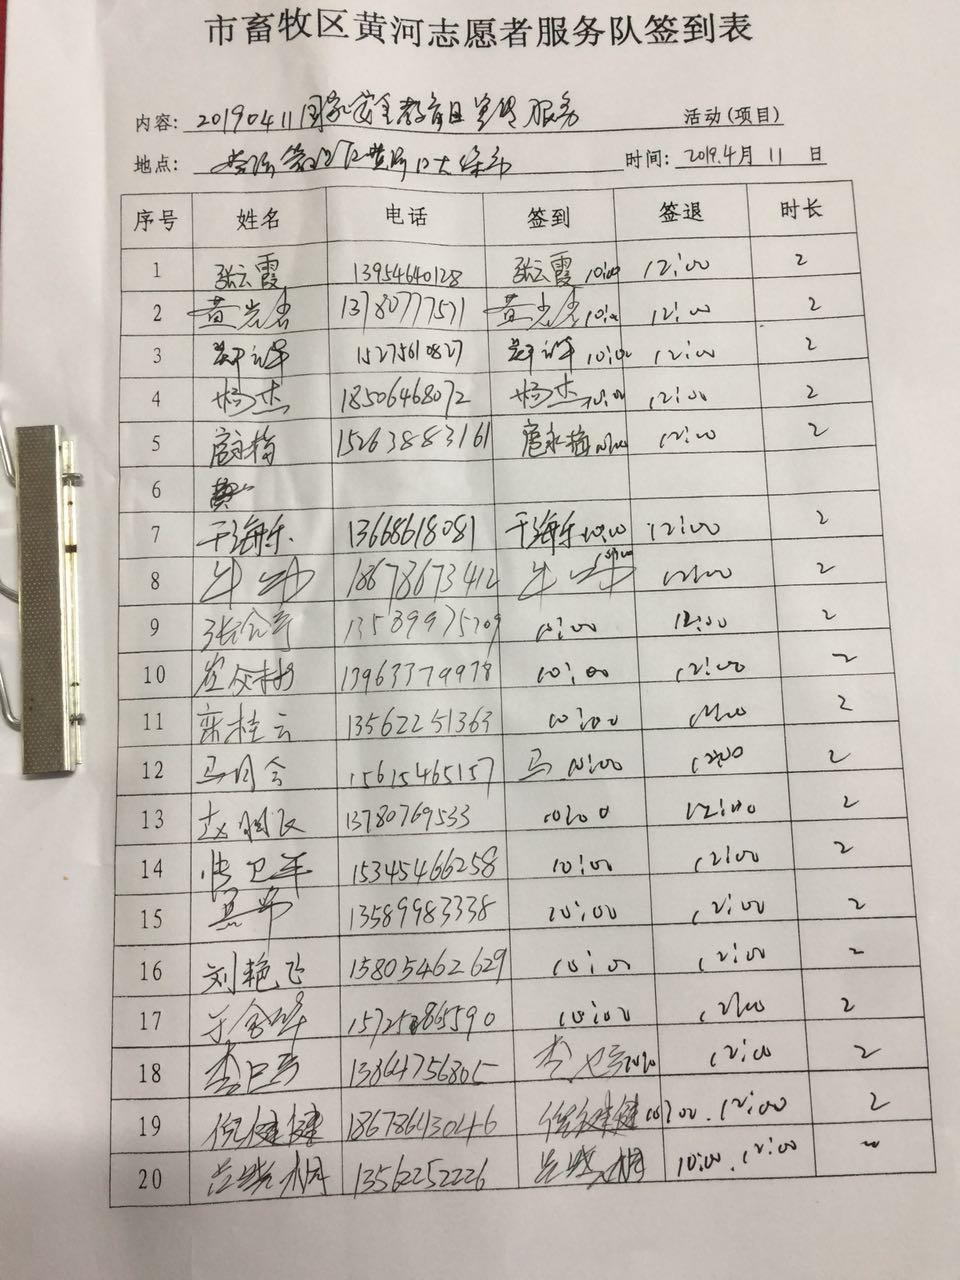 市畜牧区黄河志愿者服务队签到表
内容: 20190411国家安全教育日宣传服务 活动(项目)
地点: 时间: 2019.4月11日
序号 姓名 电话 签到 签退 时长
1 张云霞 13954640128 张云霞 10:00 12:00 2
2 黄光君 13780777571 黄光君 10:00 12:00 2
3 15275610827 10:00 12:00 2
4 杨杰 18506468072 杨杰 10:00 12:00 2
5 扈永梅 15263883161 扈永梅 10:00 12:00 2
6
7 于海乐 13668618081 于海乐 10:00 12:00 2
8 牛 18678673412 牛 12:00 2
9 13589975709 10:00 12:00 2
10 13963379978 10:00 12:00 2
11 栾桂云 13562251363 10:00 12:00 2
12 马月会 15615465157 马 10:00 12:00 2
13 赵 13780769533 10:00 12:00 2
14 张卫军 15345466258 10:00 12:00 2
15 13589983338 10:00 12:00 2
16 刘艳飞 15805462629 10:00 12:00 2
17 于金峰 10:00 12:00 2
18 李卫 13864756805 李卫 12:00 2
19 倪健健 18678643046 倪健健 10:00. 12:00 2
20 吕晓桐 13562252226 吕晓桐 10:00. 12:00 2